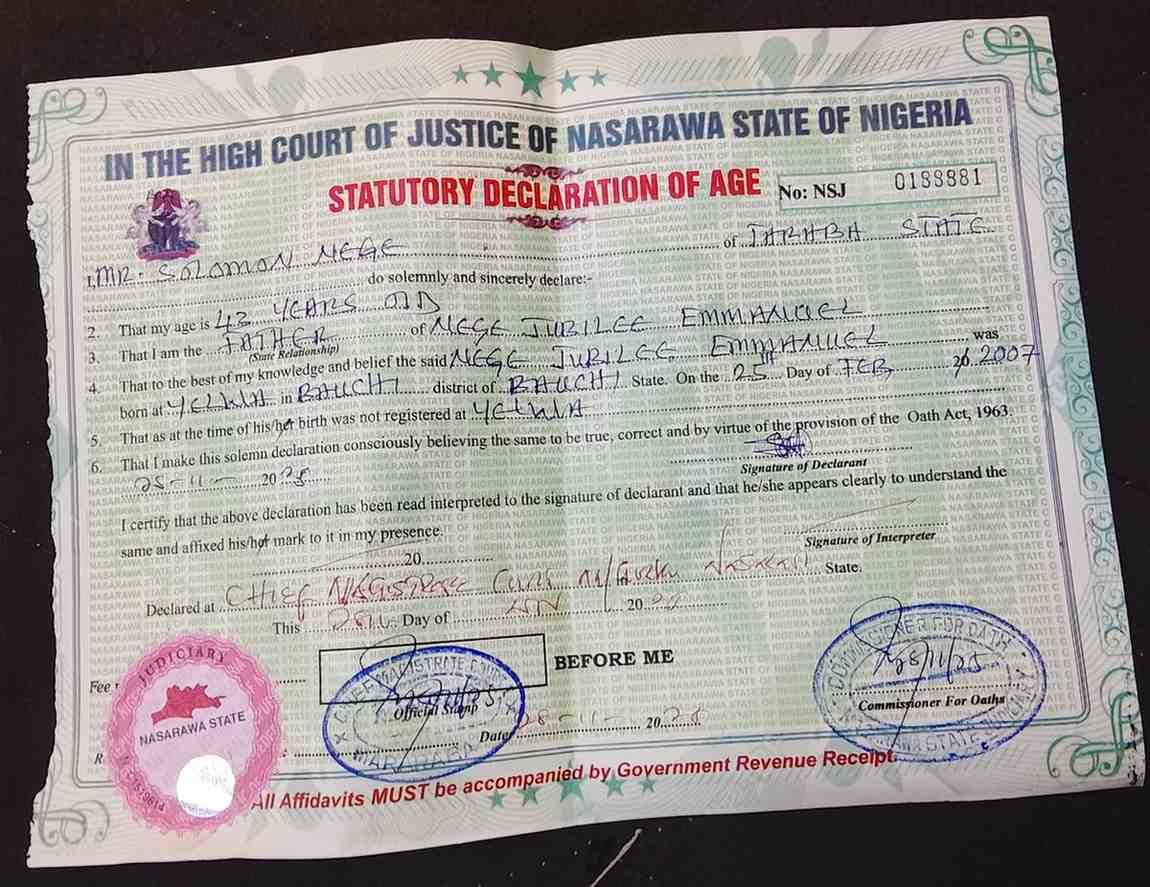 IN THE HIGH COURT OF JUSTICE OF NASARAWA STATE OF NIGERIA
STATUTORY DECLARATION OF AGE
No: NSJ 0188881
I, MR. SOLOMON NEGE of TARABA STATE
do solemnly and sincerely declare:-
2. That my age is 43 YEARS OLD
3. That I am the FATHER of NEGE JUBILEE EMMANUEL
(State Relationship)
4. That to the best of my knowledge and belief the said NEGE JUBILEE EMMANUEL was
born at YELWA in BAUCHI district of BAUCHI State. On the 25th Day of FEB 20 2007
5. That as at the time of his/her birth was not registered at YELWA
6. That I make this solemn declaration consciously believing the same to be true, correct and by virtue of the provision of the Oath Act, 1963.
25-11- 2025
Signature of Declarant
I certify that the above declaration has been read interpreted to the signature of declarant and that he/she appears clearly to understand the
same and affixed his/her mark to it in my presence.
Signature of Interpreter
20
Declared at CHIEF MAGISTRATE COURT State.
This Day of 20
BEFORE ME
Fee
Official Stamp
Commissioner For Oaths
COMMISSIONER FOR OATH
28/11/25
Date 28-11- 2025
JUDICIARY
NASARAWA STATE
All Affidavits MUST be accompanied by Government Revenue Receipt.